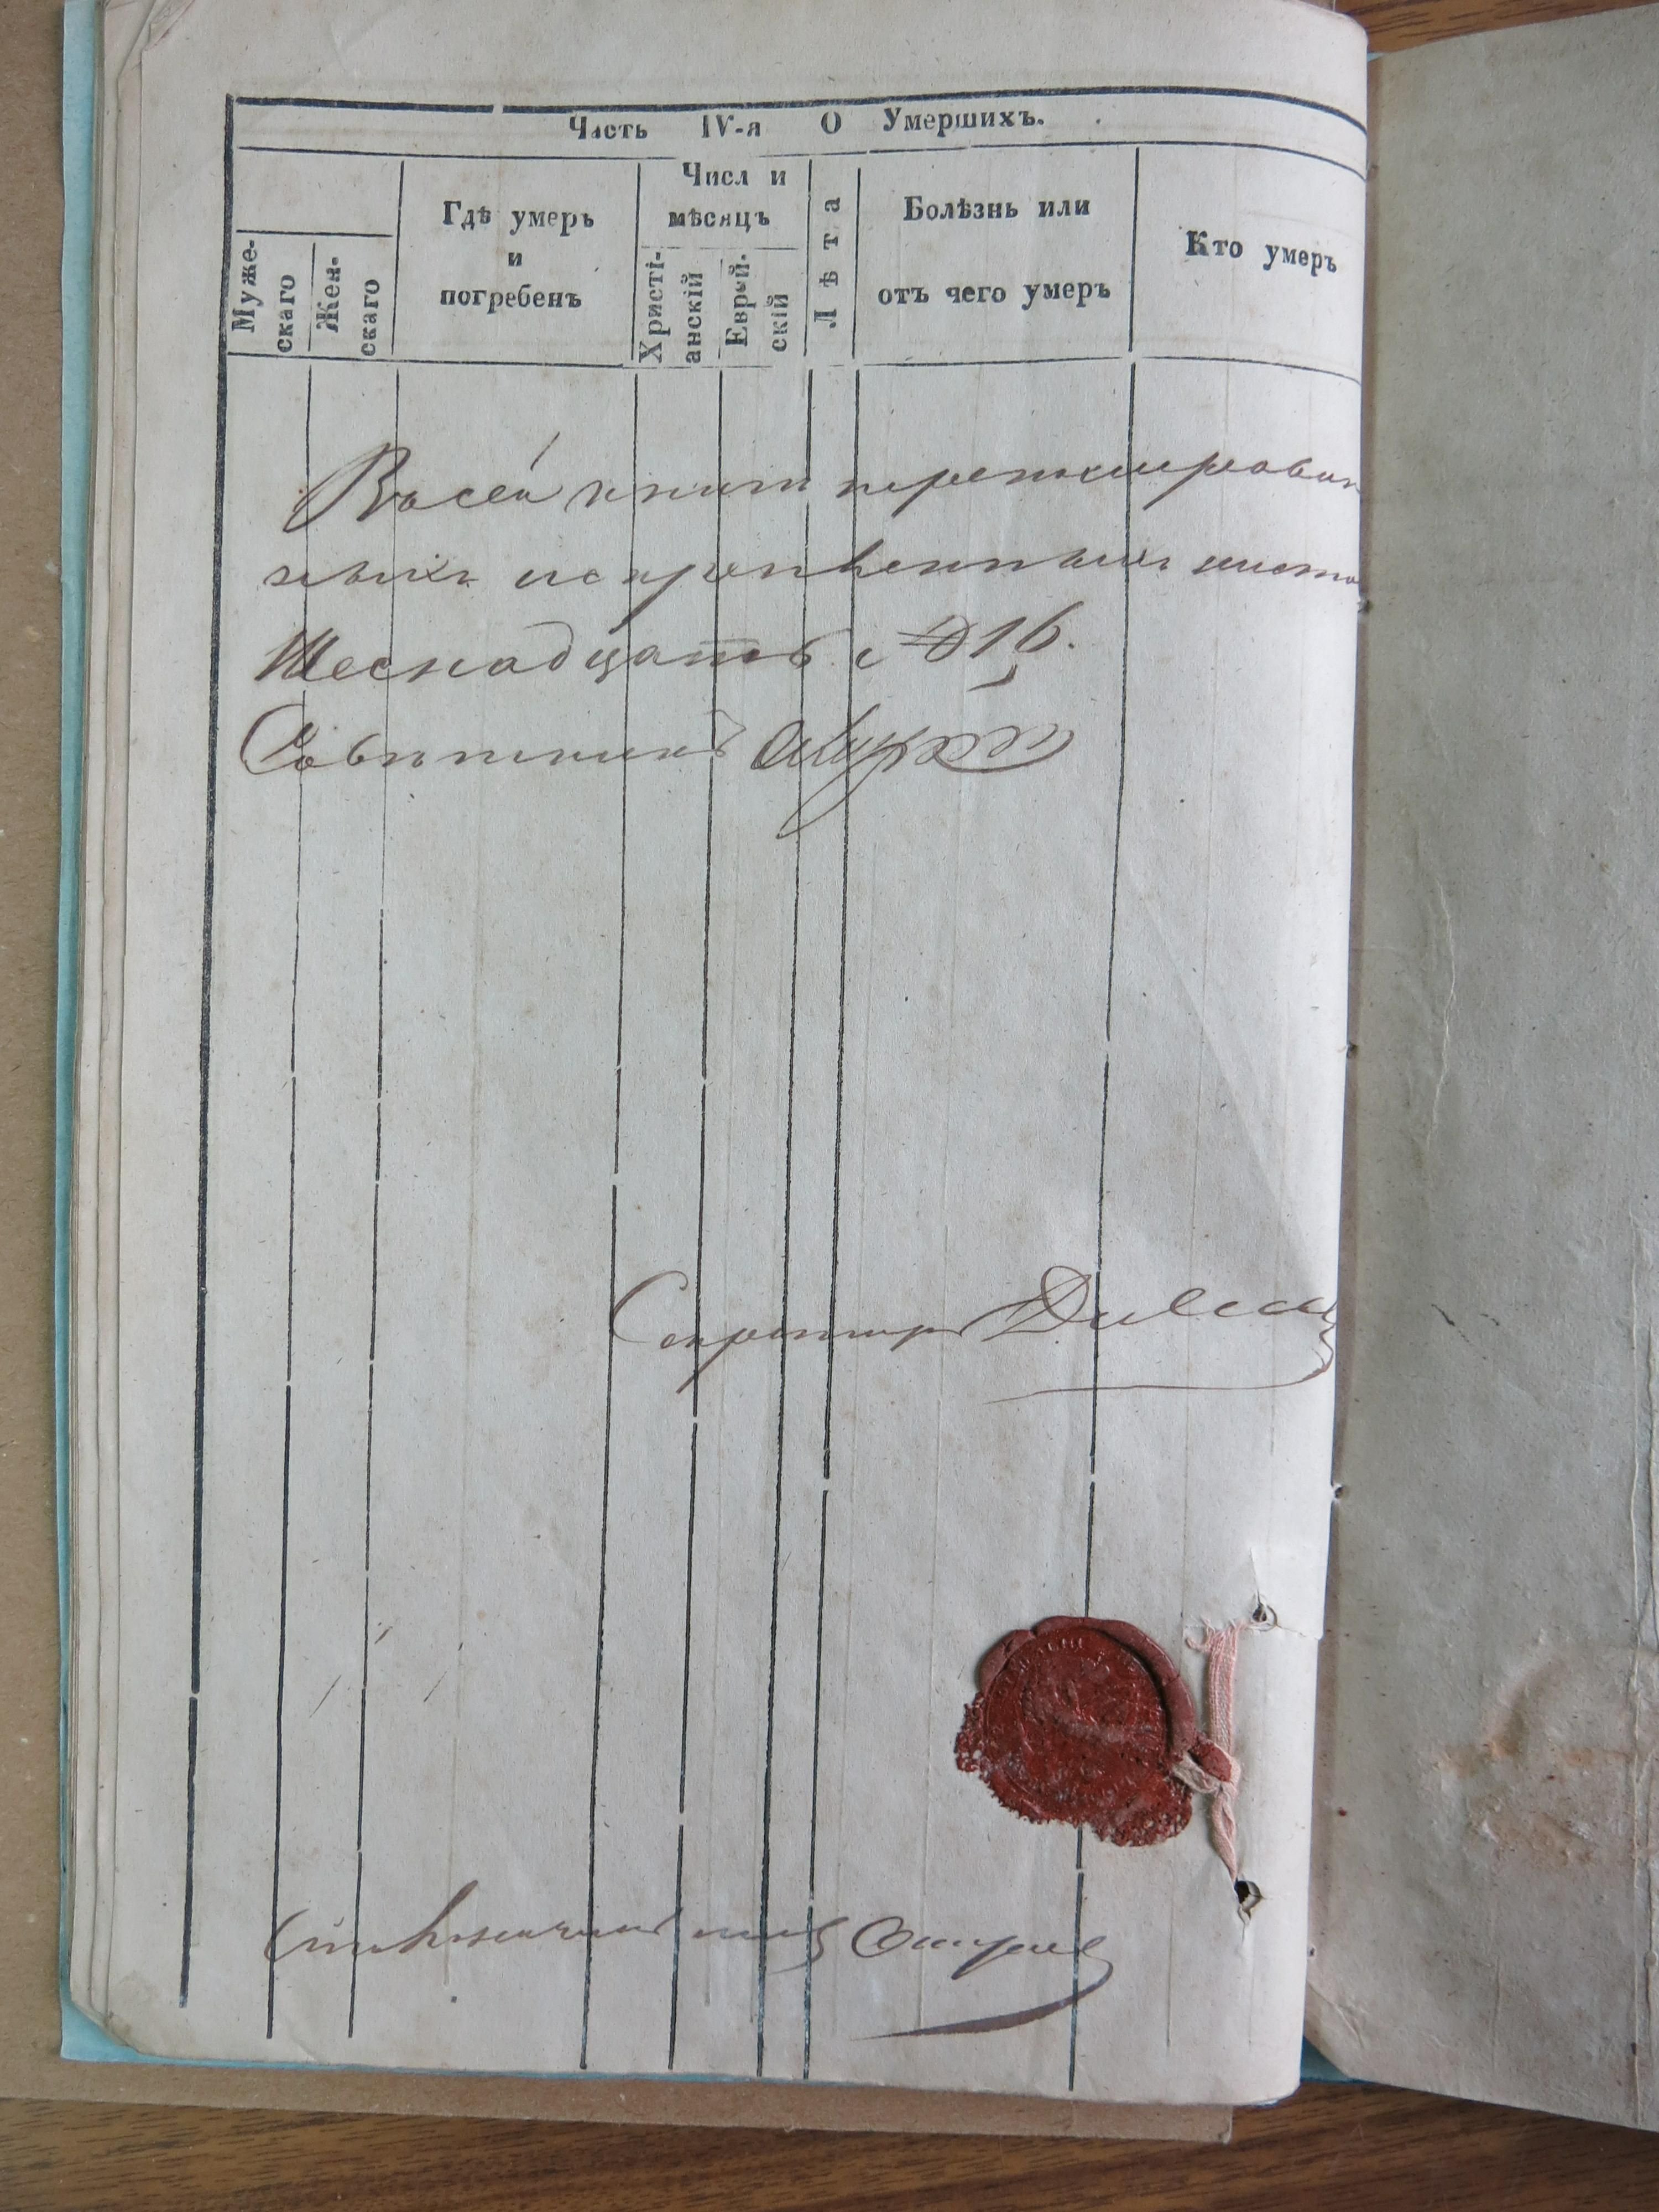 Часть IV-я О Умершихъ.
Муже-
скаго
Жен-
скаго
Гдѣ умеръ
и
погребенъ
Числ и
мѣсяцъ
Христі-
анскій
Еврей-
скій
Лѣта
Болѣзнь или
отъ чего умеръ
Кто умеръ
Въ сей книги перенумерован
ныхъ и скрепленныхъ листо
Шеснадцать № 16.
Совѣтникъ
Секретарь
Столоначальникъ